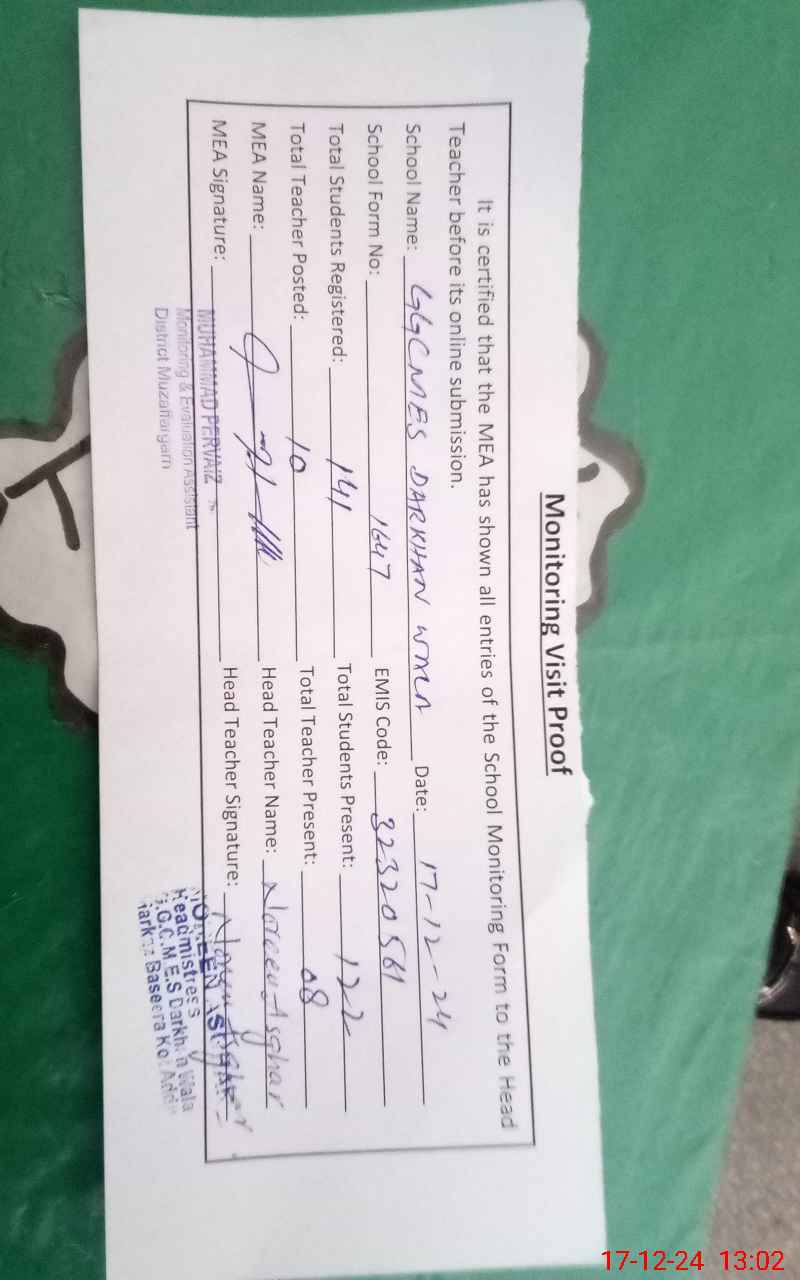 Monitoring Visit Proof
It is certified that the MEA has shown all entries of the School Monitoring Form to the Head
Teacher before its online submission.
School Name: GGCMES DARKHAN WALA Date: 17-12-24
School Form No: 1647 EMIS Code: 32320561
Total Students Registered: 141 Total Students Present: 122
Total Teacher Posted: 10 Total Teacher Present: 08
MEA Name: Head Teacher Name: Noreen Asghar
MEA Signature: Head Teacher Signature: Noreen Asghar
MUHAMMAD PERVAIZ
Monitoring & Evaluation Assistant
District Muzaffargarh
NOREEN ASGHAR
Headmistress
G.G.C.M.E.S Darkhan Wala
Baseera Kot Addu
17-12-24 13:02